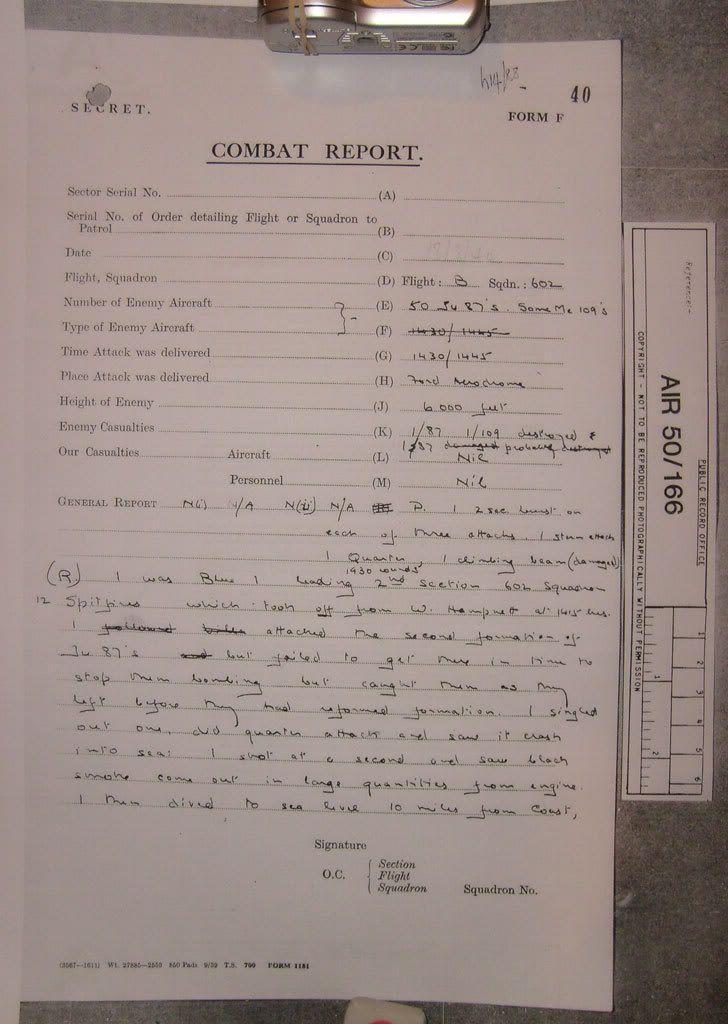 SECRET.
40
FORM F
COMBAT REPORT.
Sector Serial No. (A)
Serial No. of Order detailing Flight or Squadron to
Patrol (B)
Date (C)
Flight, Squadron (D) Flight: B Sqdn.: 602
Number of Enemy Aircraft (E) 50 Ju 87's. Some Me 109's
Type of Enemy Aircraft (F) 1430/1445
Time Attack was delivered (G) 1430/1445
Place Attack was delivered (H) Ford Aerodrome
Height of Enemy (J) 6.000 feet
Enemy Casualties (K) 1/87 1/109 destroyed &
1/87 damaged probably destroyed
Our Casualties Aircraft (L) Nil
Personnel (M) Nil
GENERAL REPORT N(i) N/A N(ii) N/A P. 1 2 sec burst on
each of three attacks. 1 stern attack
1 Quarter, 1 climbing beam (damaged)
1930 rounds
(R) I was Blue 1 leading 2nd Section 602 Squadron
12 Spitfires which took off from W. Hampnett at 1415 hrs.
I followed attacked the second formation of
Ju 87's and but failed to get there in time to
stop them bombing but caught them as they
left before they had reformed formation. I singled
out one, did quarter attack and saw it crash
into sea: I shot at a second and saw black
smoke come out in large quantities from engine.
I then dived to sea level 10 miles from Coast,
Signature
O.C. Section
Flight
Squadron Squadron No.
(3567—1611) Wt. 27885—2553 850 Pads 9/39 T.S. 700 FORM 1151
Reference:-
PUBLIC RECORD OFFICE
AIR 50/166
COPYRIGHT - NOT TO BE REPRODUCED PHOTOGRAPHICALLY WITHOUT PERMISSION
1
2
3
4
5
6
1
2